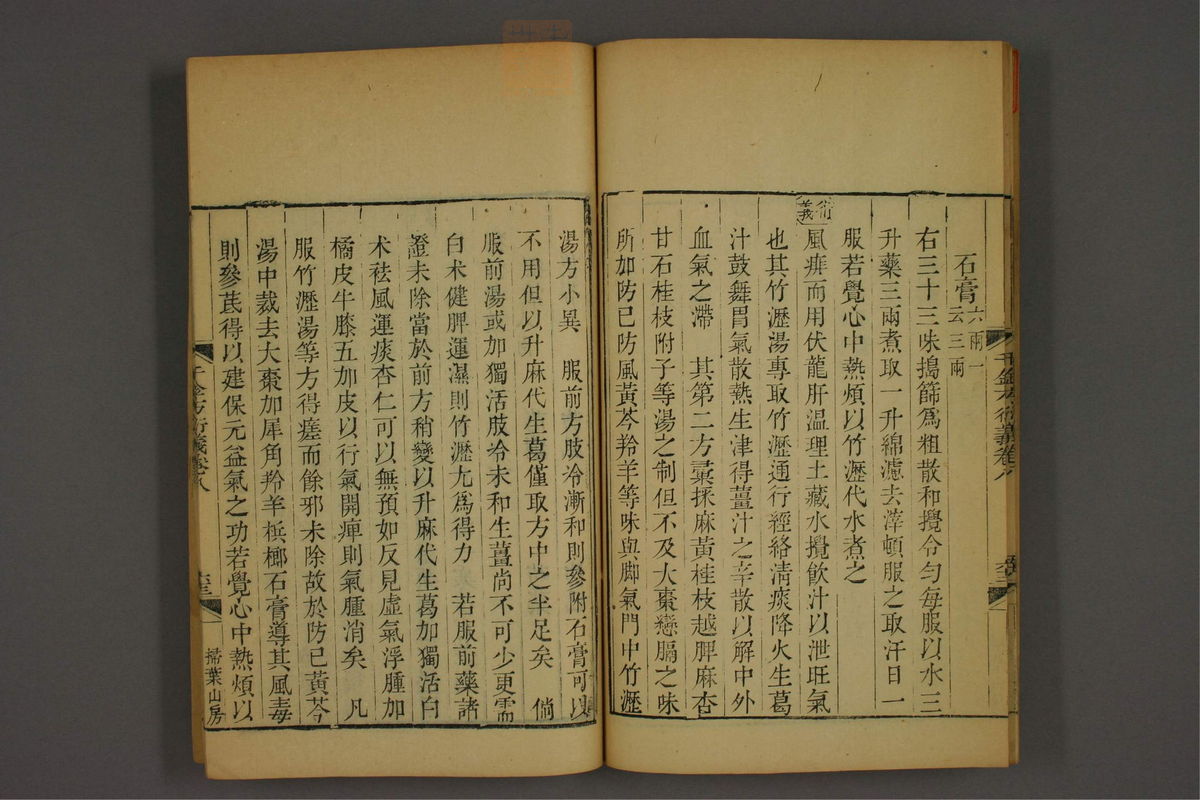 石膏六兩一云三兩
右三十三味搗篩爲粗散和攪令勻每服以水三
升藥三兩煮取一升綿濾去滓頓服之取汗日一
服若覺心中熱煩以竹瀝代水煮之
衍義
風痱而用伏龍肝溫理土藏水攪飲汁以泄旺氣
也其竹瀝湯專取竹瀝通行經絡淸痰降火生葛
汁鼓舞胃氣散熱生津得薑汁之辛散以解中外
血氣之滯　其第二方彚採麻黃桂枝越脾麻杏
甘石桂枝附子等湯之制但不及大棗戀膈之味
所加防已防風黃芩羚羊等味與脚氣門中竹瀝
湯方小異　服前方肢冷漸和則參附石膏可以
不用但以升麻代生葛僅取方中之半足矣　倘
服前湯或加獨活肢冷未和生薑尚不可少更需
白术健脾運濕則竹瀝尤爲得力　若服前藥諸
證未除當於前方稍變以升麻代生葛加獨活白
术祛風運痰杏仁可以無預如反見虛氣浮腫加
橘皮牛膝五加皮以行氣開痺則氣腫消矣　凡
服竹瀝湯等方得瘥而餘邪未除故於防已黃芩
湯中裁去大棗加犀角羚羊檳榔石膏導其風毒
則參芪得以建保元益氣之功若覺心中熱煩以
千金方衍義卷八
掃葉山房